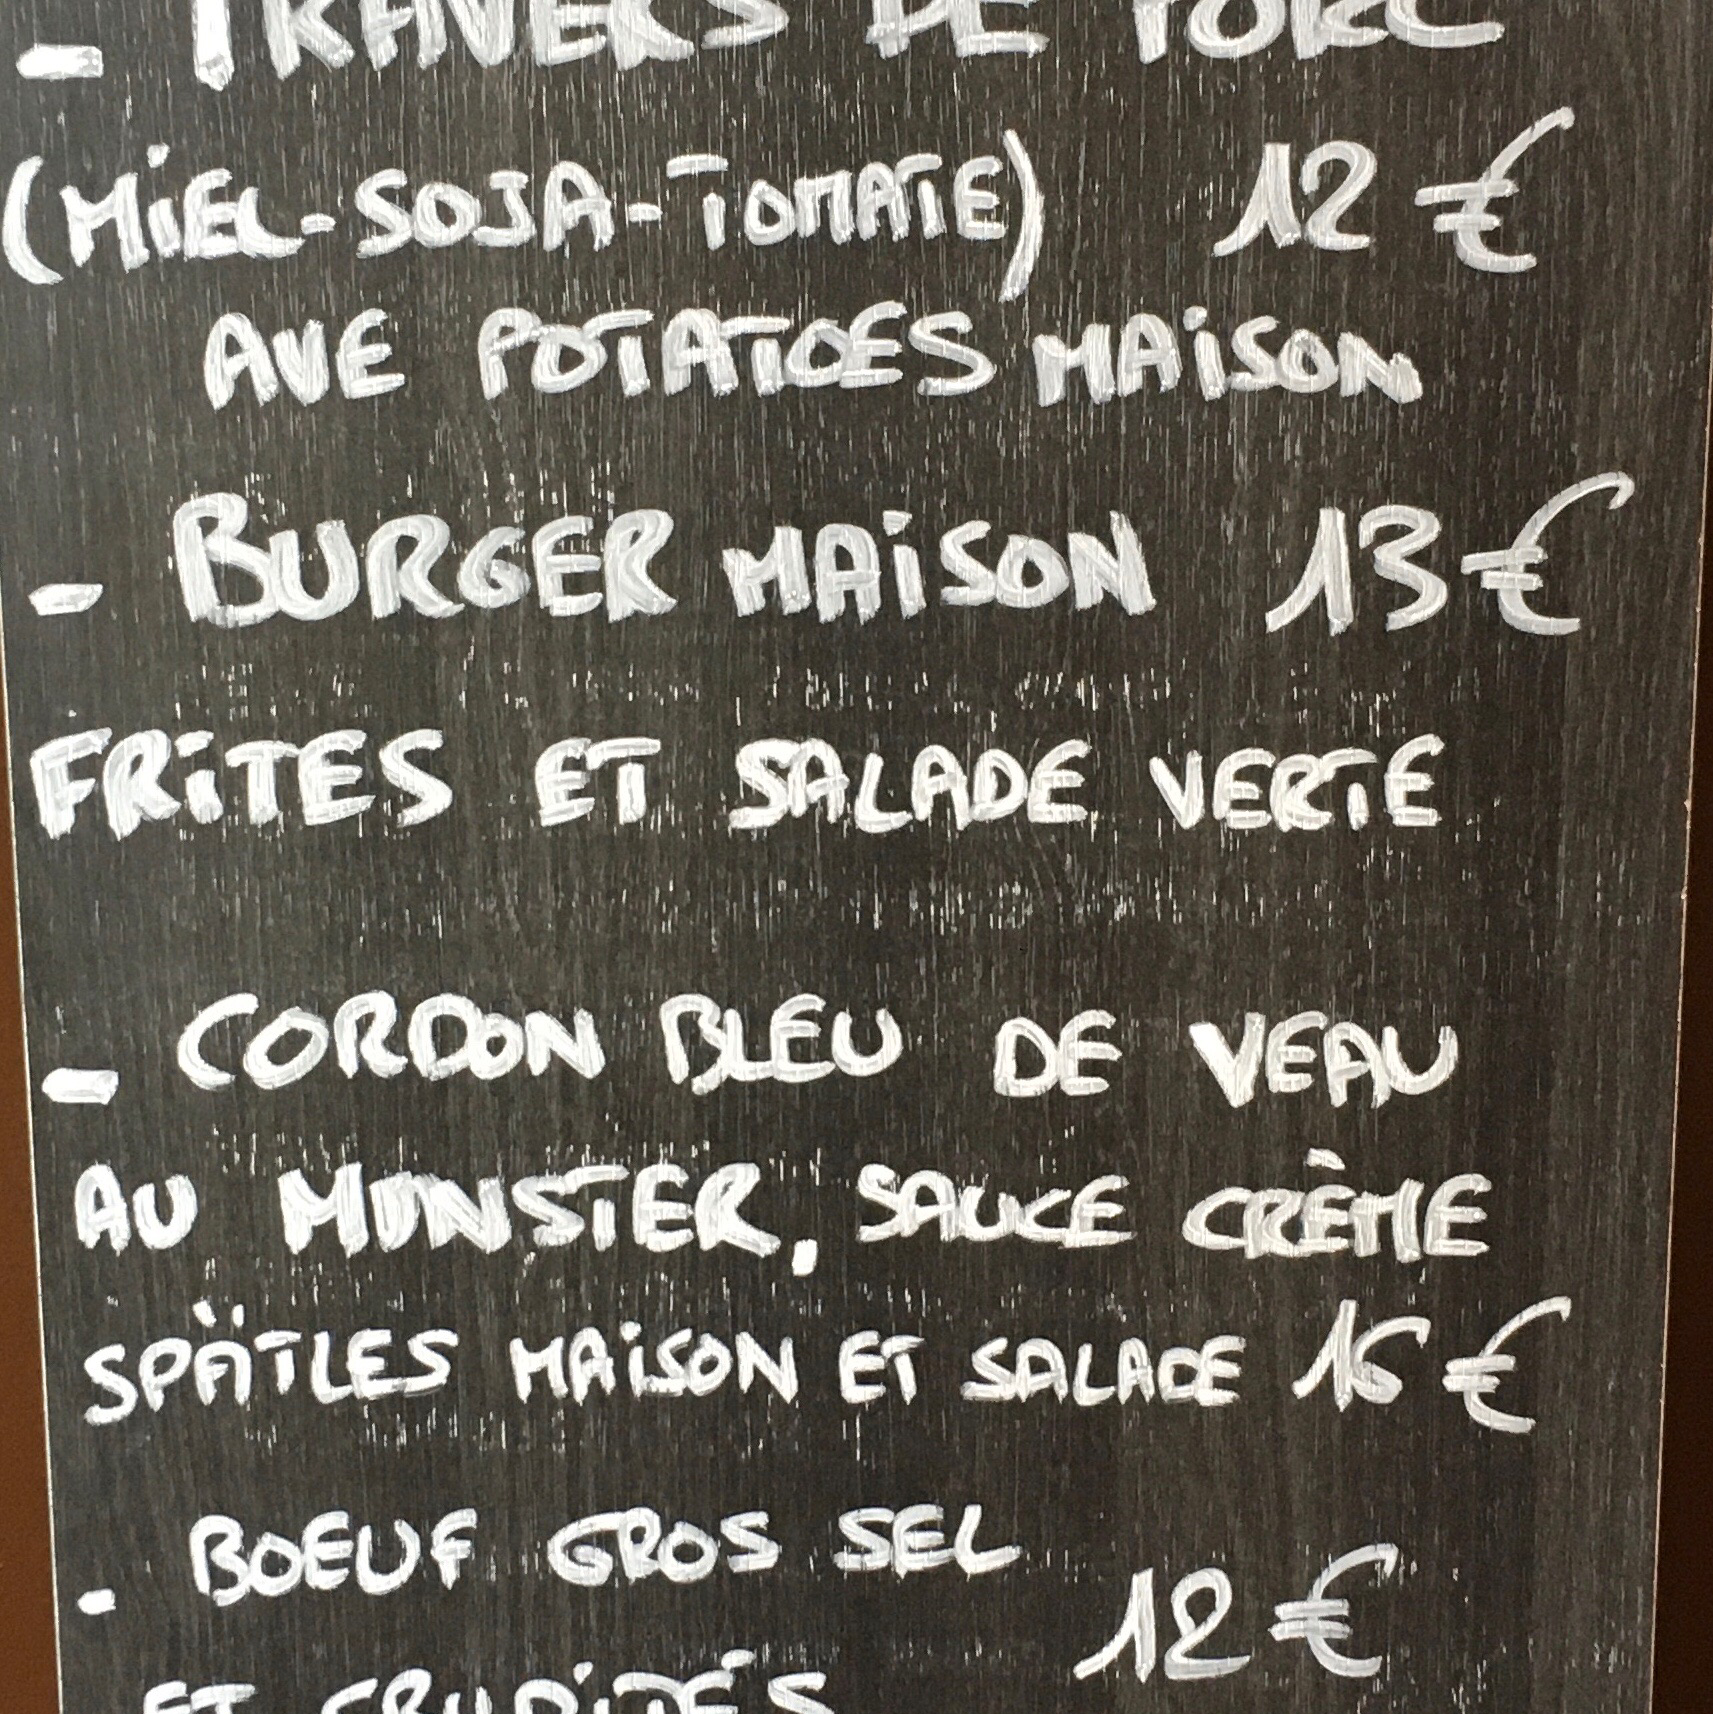 - TRAVERS DE PORC
(MiEL-SOJA-TOMATE) 12 €
AVE POTATOES MAiSON
- BURGER MAiSON 13 €
FRiTES ET SALADE VERTE
- CORDON BLEU DE VEAU
AU MUNSTER, SAUCE CRÈME
SPÄTLES MAiSON ET SALADE 16 €
- BOEUF GROS SEL
12 €
ET CRUDiTÉS